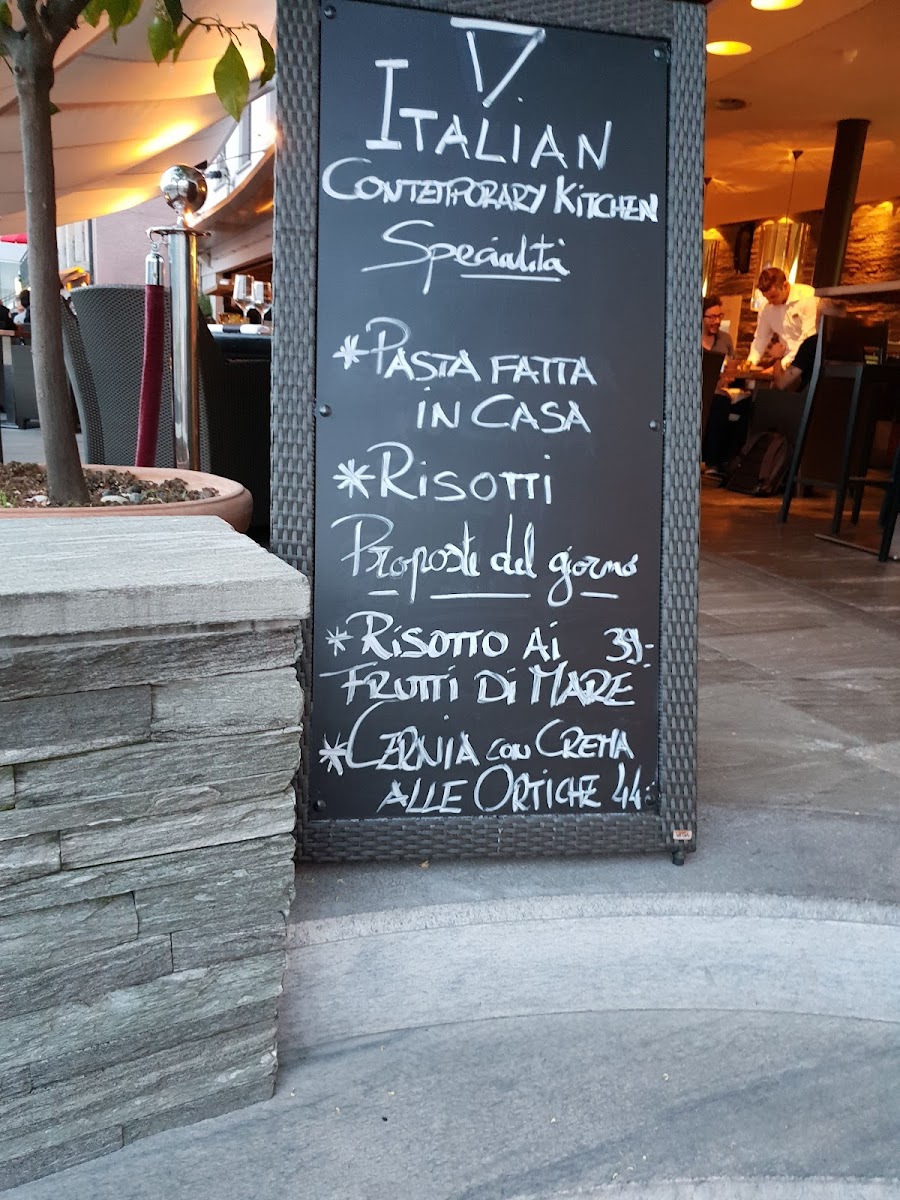 ITALIAN
CONTEMPORARY KITCHEN
Specialità
*PASTA FATTA
IN CASA
*RISOTTI
Proposte del giorno
*RISOTTO AI 39.-
FRUTTI DI MARE
*CERNIA CON CREMA
ALLE ORTICHE 44.-